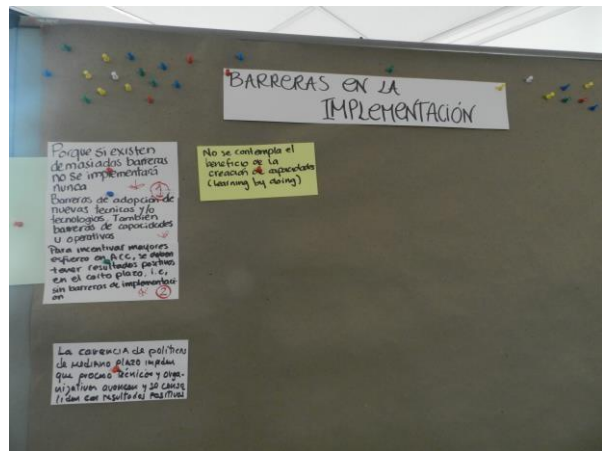 BARRERAS EN LA
IMPLEMENTACIÓN
Porque si existen
demasiadas barreras
no se implementará
nunca
1
Barreras de adopción de
nuevas técnicas y/o
tecnologías. También
barreras de capacidades
u operativas
Para incentivar mayores
esfuerzo en ACC, se deben
tener resultados positivos
en el corto plazo, i.e,
sin barreras de implementaci-
on
2
No se contempla el
beneficio de la
creación de capacidades
(learning by doing)
La carencia de políticas
de mediano plazo impiden
que procesos técnicos y orga-
nizativos avancen y se conso
liden con resultados positivos